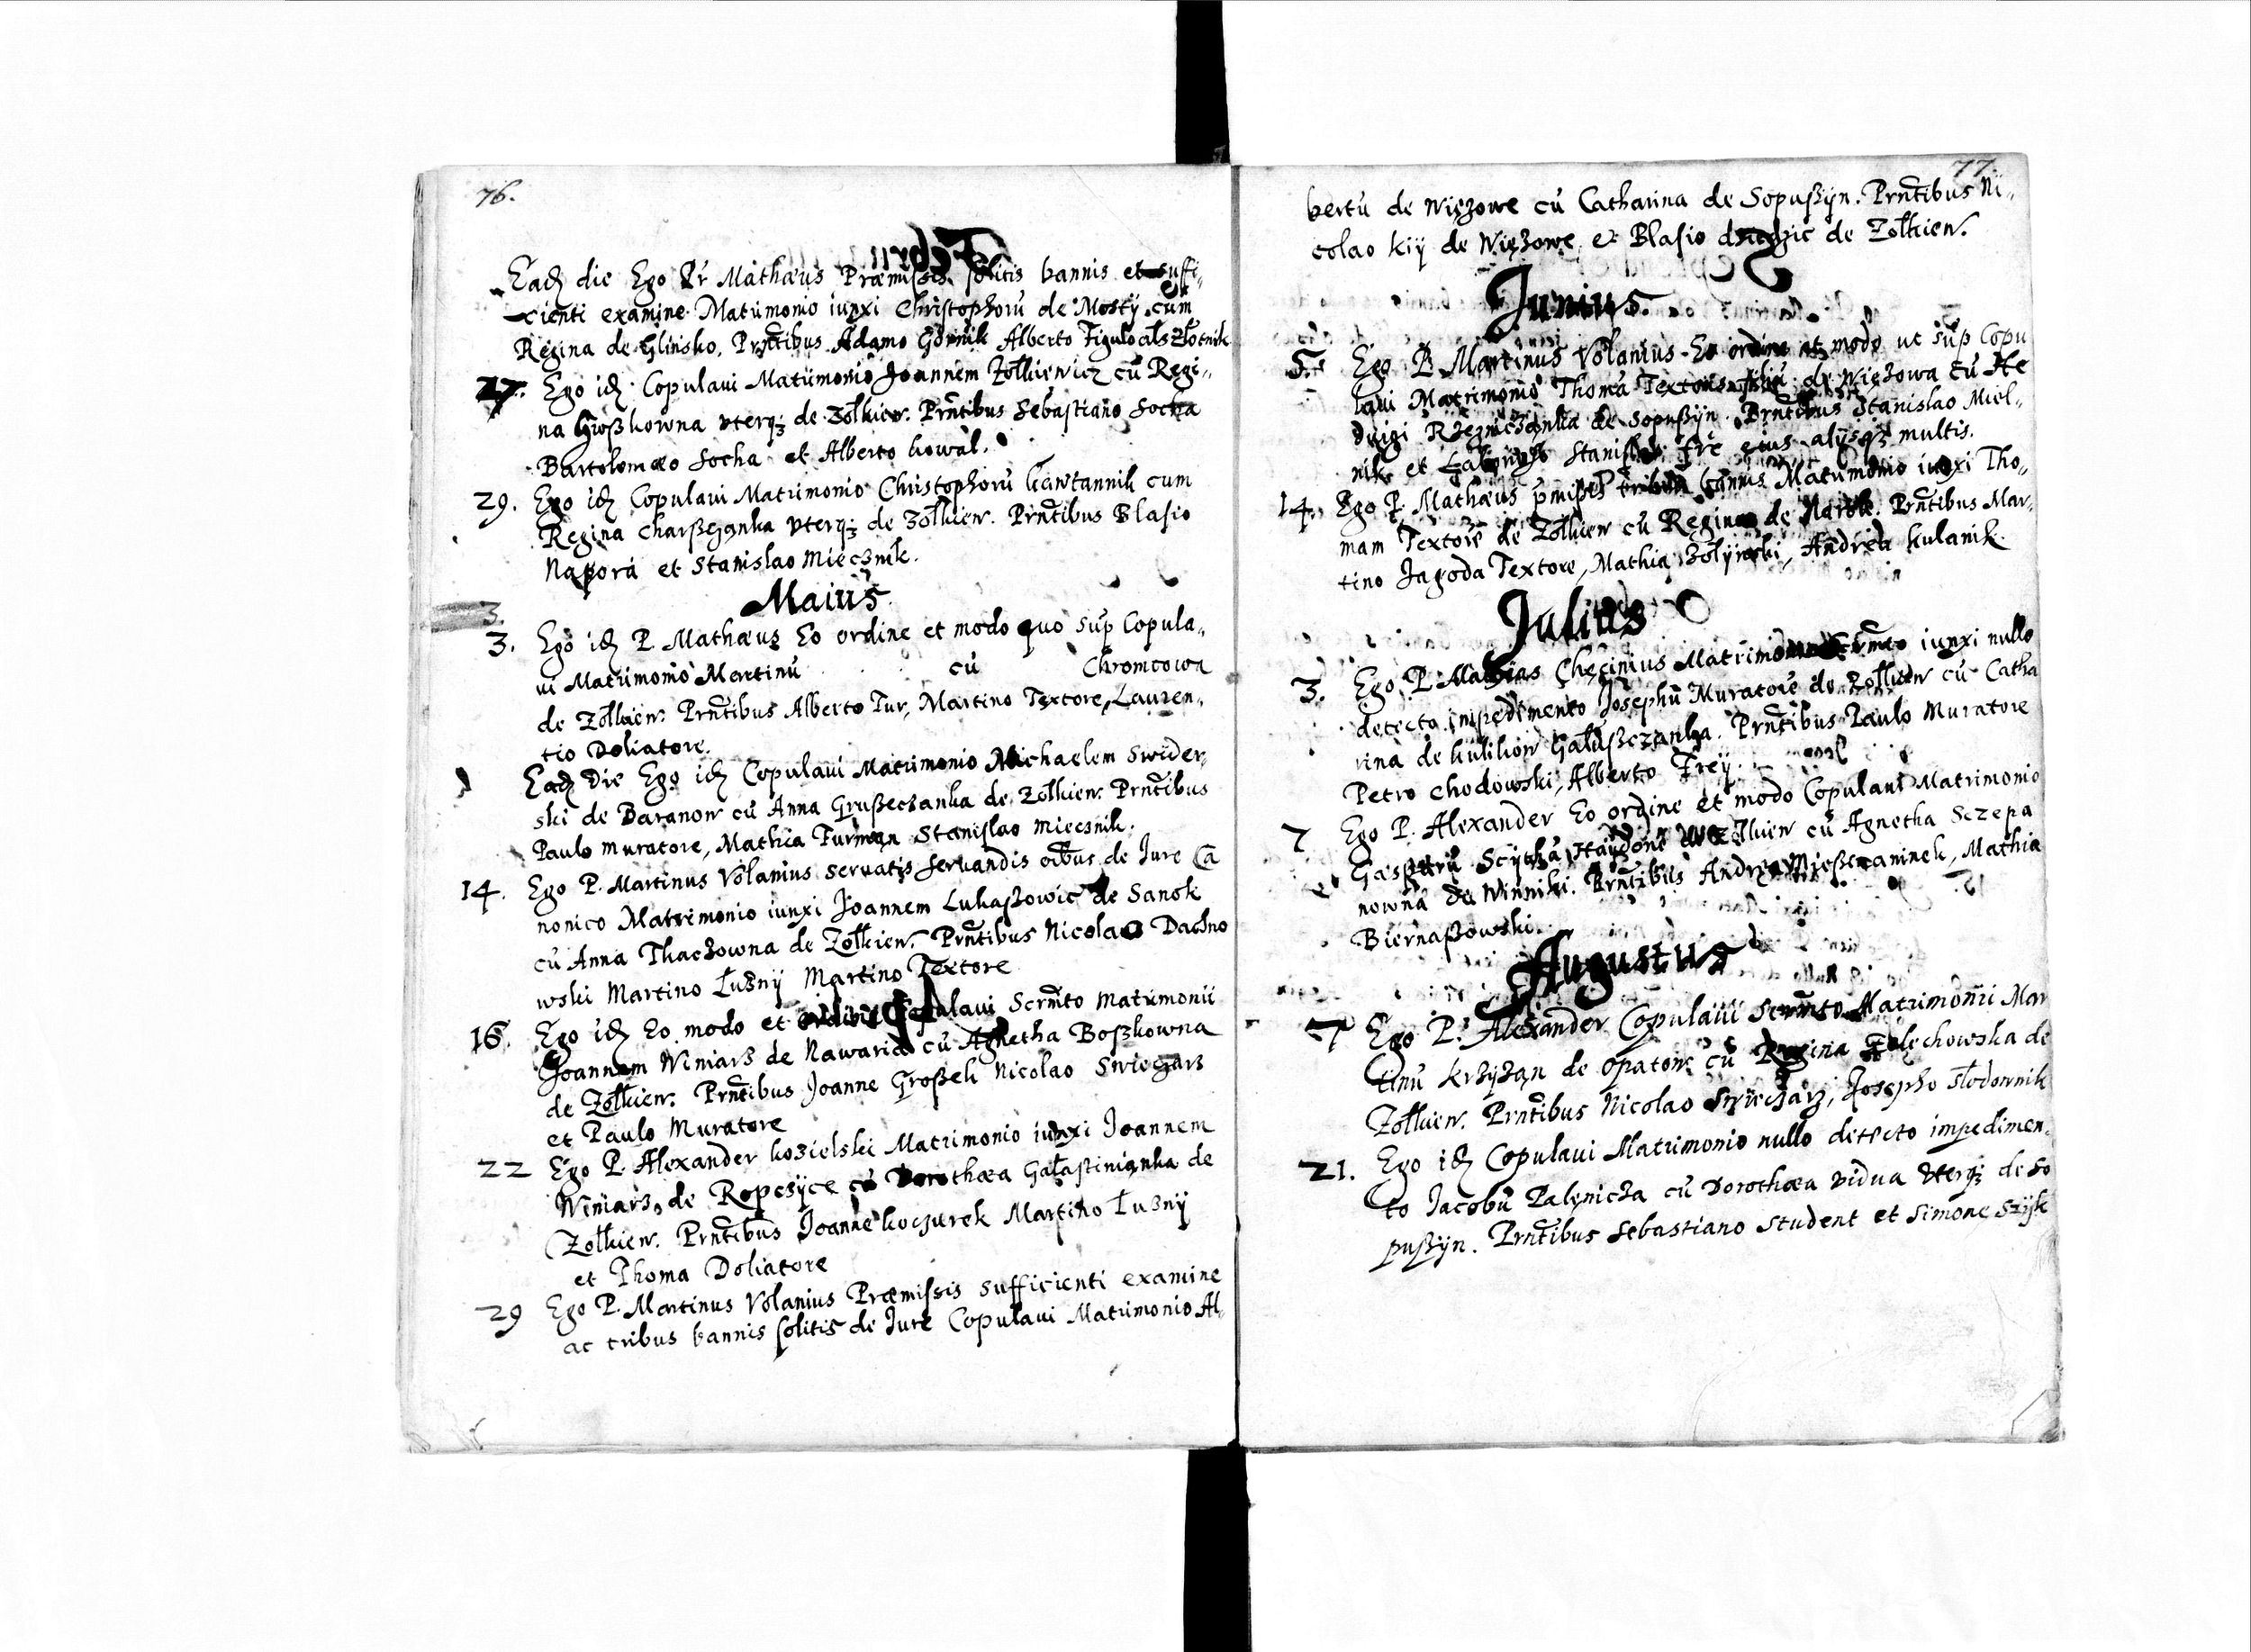 76.
Eadē die Ego Pr Mathæus Præmissis solitis bannis et suffi„
cienti examine Matrimonio iunxi Christophorū de Mosty cum
Regina de Glinsko. Prñtibus Adamo Gornik Alberto Figulo als Złotnik
27. Ego idē Copulaui Matrimonio Joannem Zolkiewicz cū Regi„
na Groszkowna vterq3 de Zolkiew. Prñtibus Sebastiano Socha
Bartolomæo Socha et Alberto kowal.
29. Ego idē Copulaui Matrimonio Christophorū kawtannik cum
Regina Charßezanka vterq3 de Zolkiew. Prñtibus Blasio
Napora et Stanislao Miecznik.
Maius
3.
3. Ego idē P. Mathæus Eo ordine et modo quo sup Copula„
ui Matrimonio Martinū cū Chromcowa
de Zolkiew. Prñtibus Alberto Tur, Martino Textore, Lauren„
tio Doliatore.
Eadē Die Ego idē Copulaui Matrimonio Michaelem Swider„
ski de Baranow cū Anna Grußeczanka de Zolkiew. Prñtibus
Paulo muratore, Mathia Furman Stanislao miecznik.
14. Ego P. Martinus Volanius servatis servandis oībus de Jure Ca
nonico Matrimonio iunxi Joannem Lukaßowic de Sanok
cū Anna Thaczowna de Zolkiew. Prñtibus Nicolao Dachno
wski Martino Łuzny Martino Textore
16. Ego idē Eo modo et ordine Copulaui Scrm̄to matrimonii
Joannem Winiarz de Nawaria cū Agnetha Boszkowna
de Zolkiew. Prñtibus Joanne Großek Nicolao Swieczarz
et Paulo Muratore
22 Ego P. Alexander kozielski Matrimonio iunxi Joannem
Winiarz de Ropczyce cū Dorothæa Gałastinianka de
Zolkiew. Prñtibus Joanne koczurek Martino Łuzny
et Thoma Doliatore
29 Ego P. Martinus Volanius Præmissis sufficienti examine
ac tribus bannis solitis de Jure Copulaui Matrimonio Al„
77.
bertū de Więzowe cū Catharina de Sopußyn. Prñtibus Ni„
colao kiy de Więzowe et Blasio de Zolkiew.
Junius.
5. Ego P. Martinus Volanius Eo ordine et modo ut sup Copu
laui Matrimonio Thomā Textoris filiū de Więzowa cū He
dwigi Rzezniczanka de Sopußyn. Prñtibus Stanislao Miel„
nik et Stanislao frē eius alysq3 multis.
14. Ego P. Mathæus pmißis tribus bannis Matrimonio iunxi Tho„
mam Textorē de Zolkiew cū Regina de Prñtibus Mar„
tino Jagoda Textore, Mathia Zolynski, Andrea kulanik.
Julius
3. Ego P. Mathias Chęcinius Matrimonii Scrm̄to iunxi nullo
detecto impedimento Josephū Muratorē de Zolkiew cū Catha
rina de kulikow Gałußczanka. Prñtibus Paulo Muratore
Petro Chodowski, Alberto Frey.
7 Ego P. Alexander Eo ordine et modo Copulaui Matrimonio
Gasparū Scythā, de Zolkiew cū Agnetha Sczepa
nowna de Winniki. Prñtibus Andrea Mießczaninek, Mathia
Biernaßowski.
Augustus
7 Ego P. Alexander Copulaui Scrm̄to Matrimonii Mar
tinū krzyzan de Opatow cū Regina Zelechowska de
Zolkiew. Prñtibus Nicolao Swieczarz, Josepho słodownik
21. Ego idē Copulaui Matrimonio nullo detecto impedimen„
to Jacobū Palęnicza cū Dorothæa vidua vterq3 de So
pußyn. Prñtibus Sebastiano Student et Simone Szyk